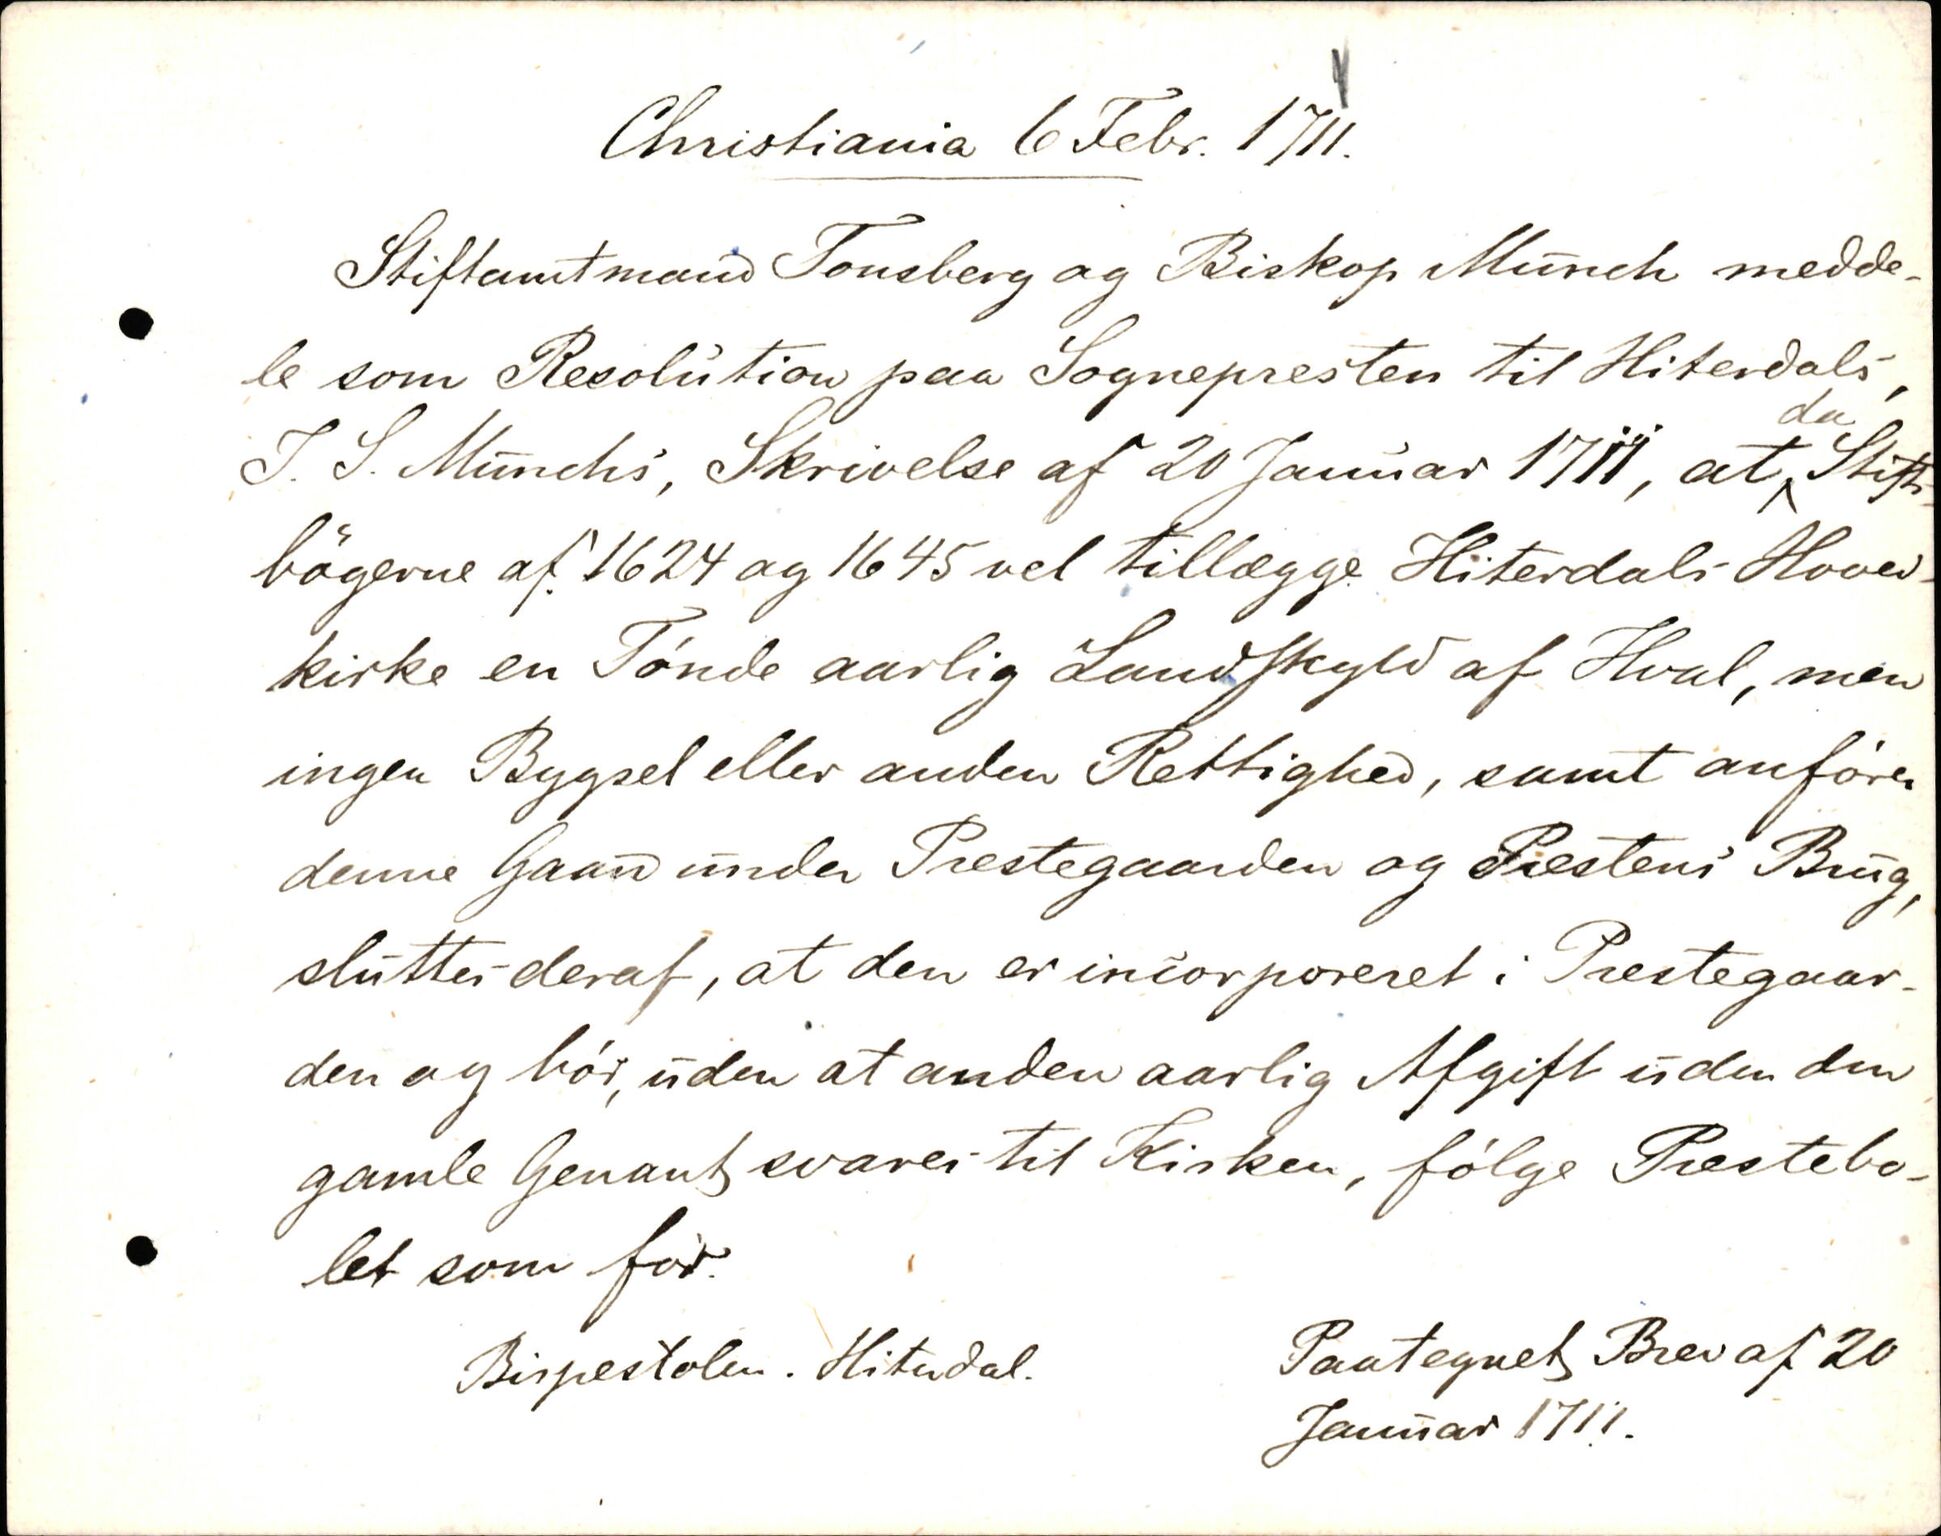 Christiania 6 Febr. 1711.
Stiftamtmand Tonsberg og Biskop Munch medde-
le som Resolution paa Sognepresten til Hiterdals,
J. S. Munchs, Skrivelse af 20 Januar 1711, at da Stifts-
bögerne af 1624 og 1645 vel tillægge Hiterdals Hoved-
kirke en Tónde aarlig Landskyld af Hval, men
ingen Bygsel eller anden Rettighed, samt anfören
denne Gaard under Prestegaarden og Prestens Brug,
sluttes deraf, at den er incorporeret i Prestegaar-
den og bór, uden at anden aarlig Afgift uden den
gamle Genant svares til Kirken, fölge Prestebo-
let som fór.
Bispestolen. Hiterdal.
Paategnet Brev af 20
Januar 1711.